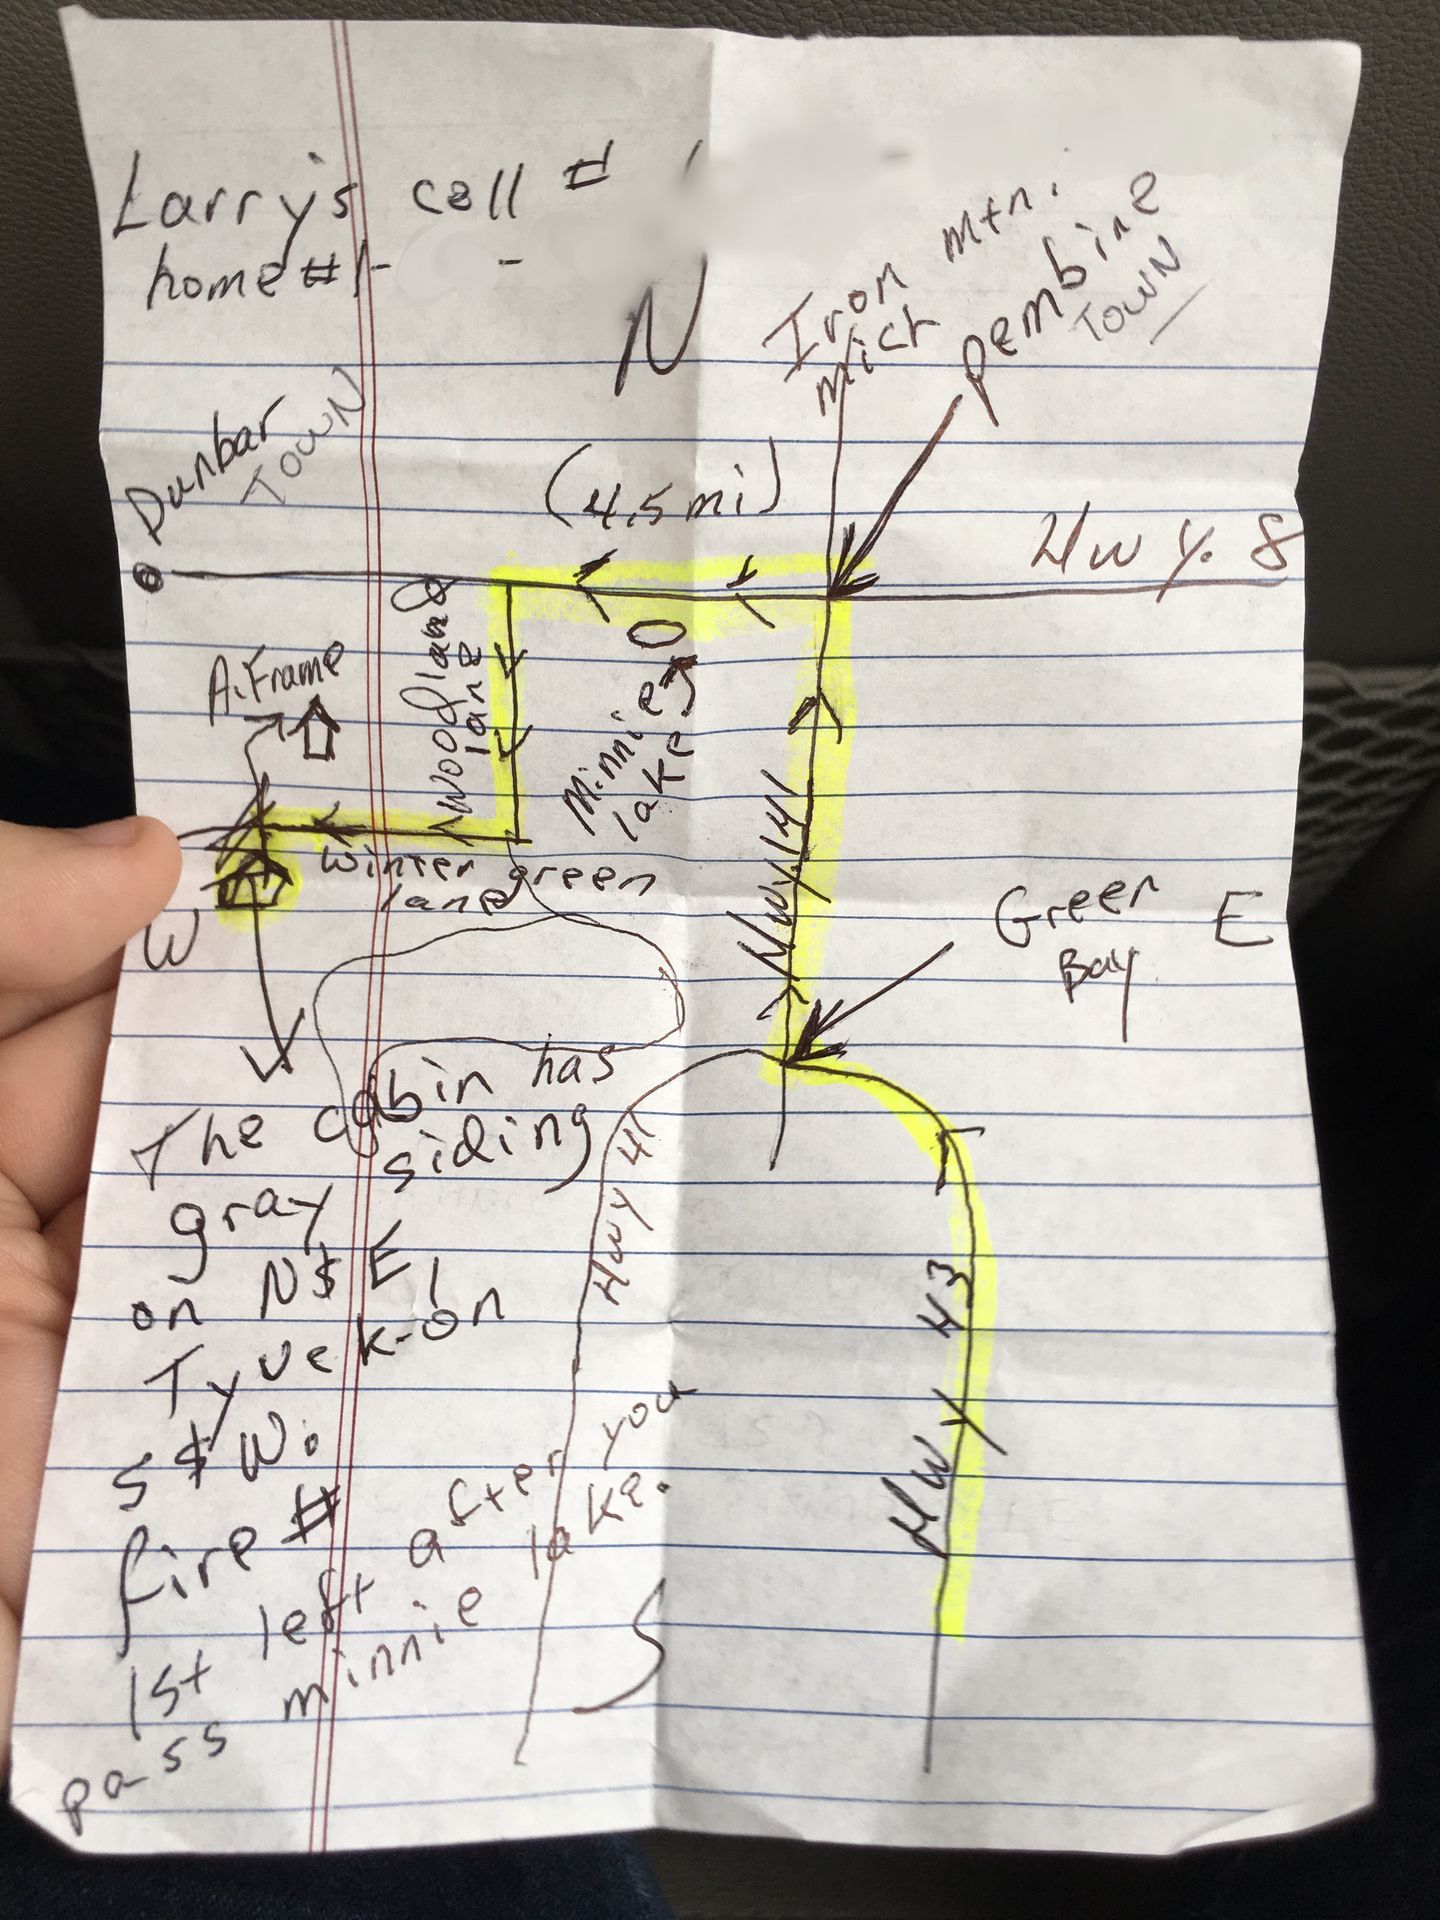 Larry's cell # 1
home # 1- -
N
Iron mtn.
mich
pembine
TOWN
Dunbar
TOWN
(4.5 mi)
Hwy. 8
A.Frame
Woodland
lane
Minnie
lake
Hwy 141
Winter green
lane
W
Green
Bay
E
The cabin has
gray siding
on N & E,
Tyvek-on
S & W.
fire #
1st left after you
pass minnie lake.
Hwy 41
Hwy 43
S